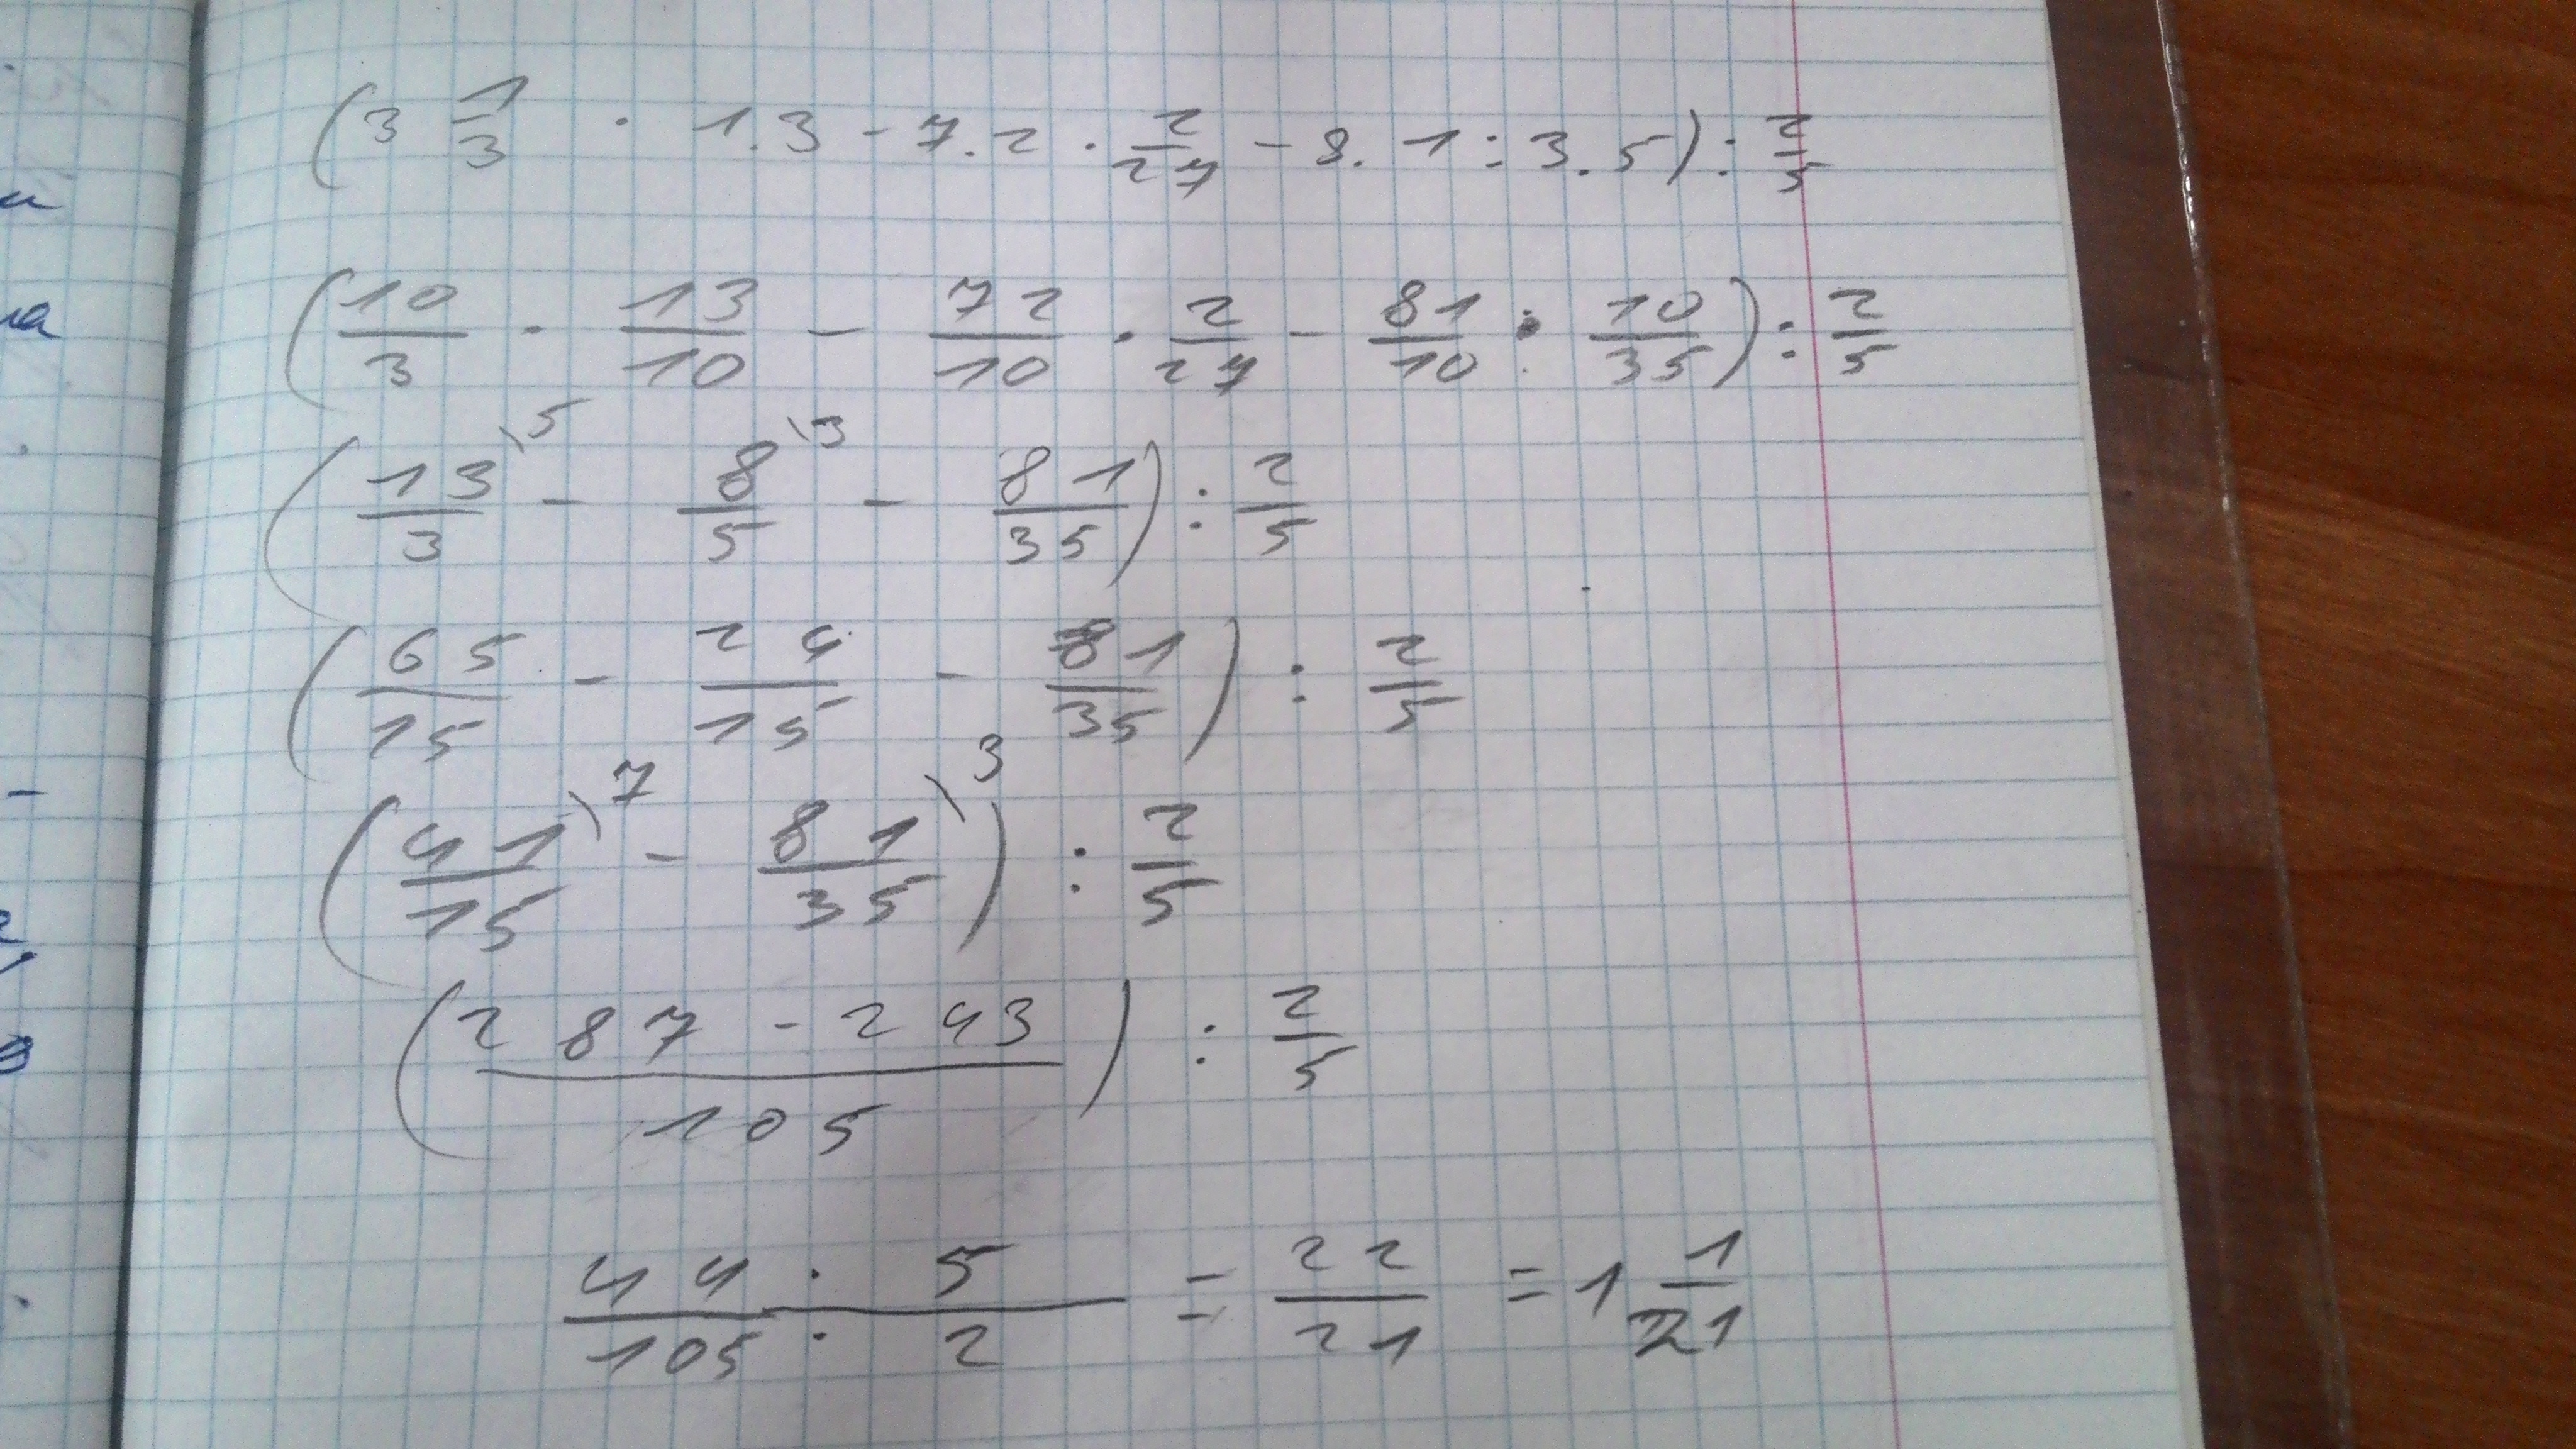 (3 1/3 · 1.3 - 7.2 · 2/27 - 8.1 : 3.5) : 2/5
(10/3 · 13/10 - 72/10 · 2/27 - 81/10 · 10/35) : 2/5
(13/3 \5 - 8/5 \3 - 81/35) : 2/5
(65/15 - 24/15 - 81/35) : 2/5
(41/15 \7 - 81/35 \3) : 2/5
(287 - 243 / 105) : 2/5
44 · 5 / 105 · 2 = 22/21 = 1 1/21